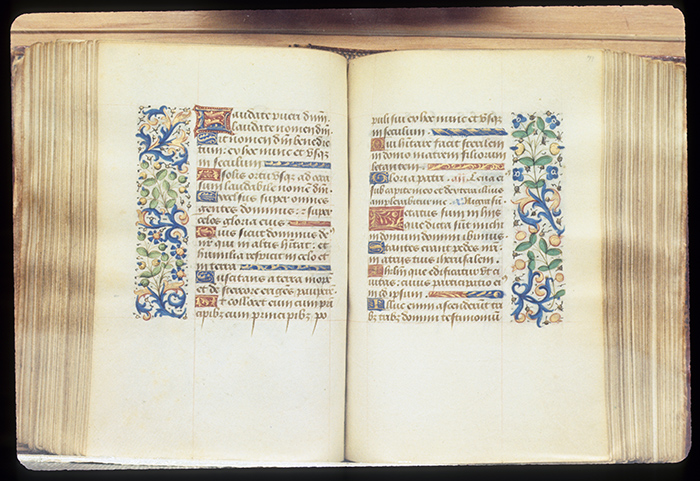 Laudate pueri dnm.
laudate nomen dni
Sit nomen dni benedic
tum: ex hoc nunc et vsqz
in seculum
A solis ortu vsqz ad occa
sum laudabile nomē dni.
Excelsus super omnes
gentes dominus: super
celos gloria eius
Quis sicut dominus de
nr qui in altis hītat: et
humilia respicit in celo et
in terra
Suscitans a terra inopē
et de stercore erigēs pauperē
Ut collocet eum cum pri
cipibz cum principibz po
puli sui ex hoc nunc et vsqz
in seculum
Qui habitare facit sterilem
in domo matrem filiorum
letantem
Gloria patri Leua ei
sub capite meo et dextera illius
amplexabitur me
Letatus sum in hijs
que dicta sūt michi
in domum domini ibimus
Stantes erant pedes nri
in atrijs tuis iherusalem
Ihrlm que edificatur vt ci
uitas: cuius participatio ei
in idipsum
Illuc enim ascenderūt tri
bz tribz domini testimoniū